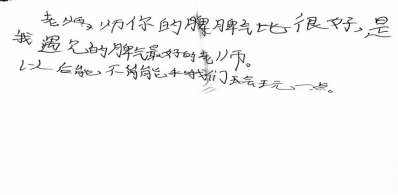 老师，你的脾脾气比很好，是
我遇见的脾气最好的老师。
以后能不能能让我们去会玩一点。